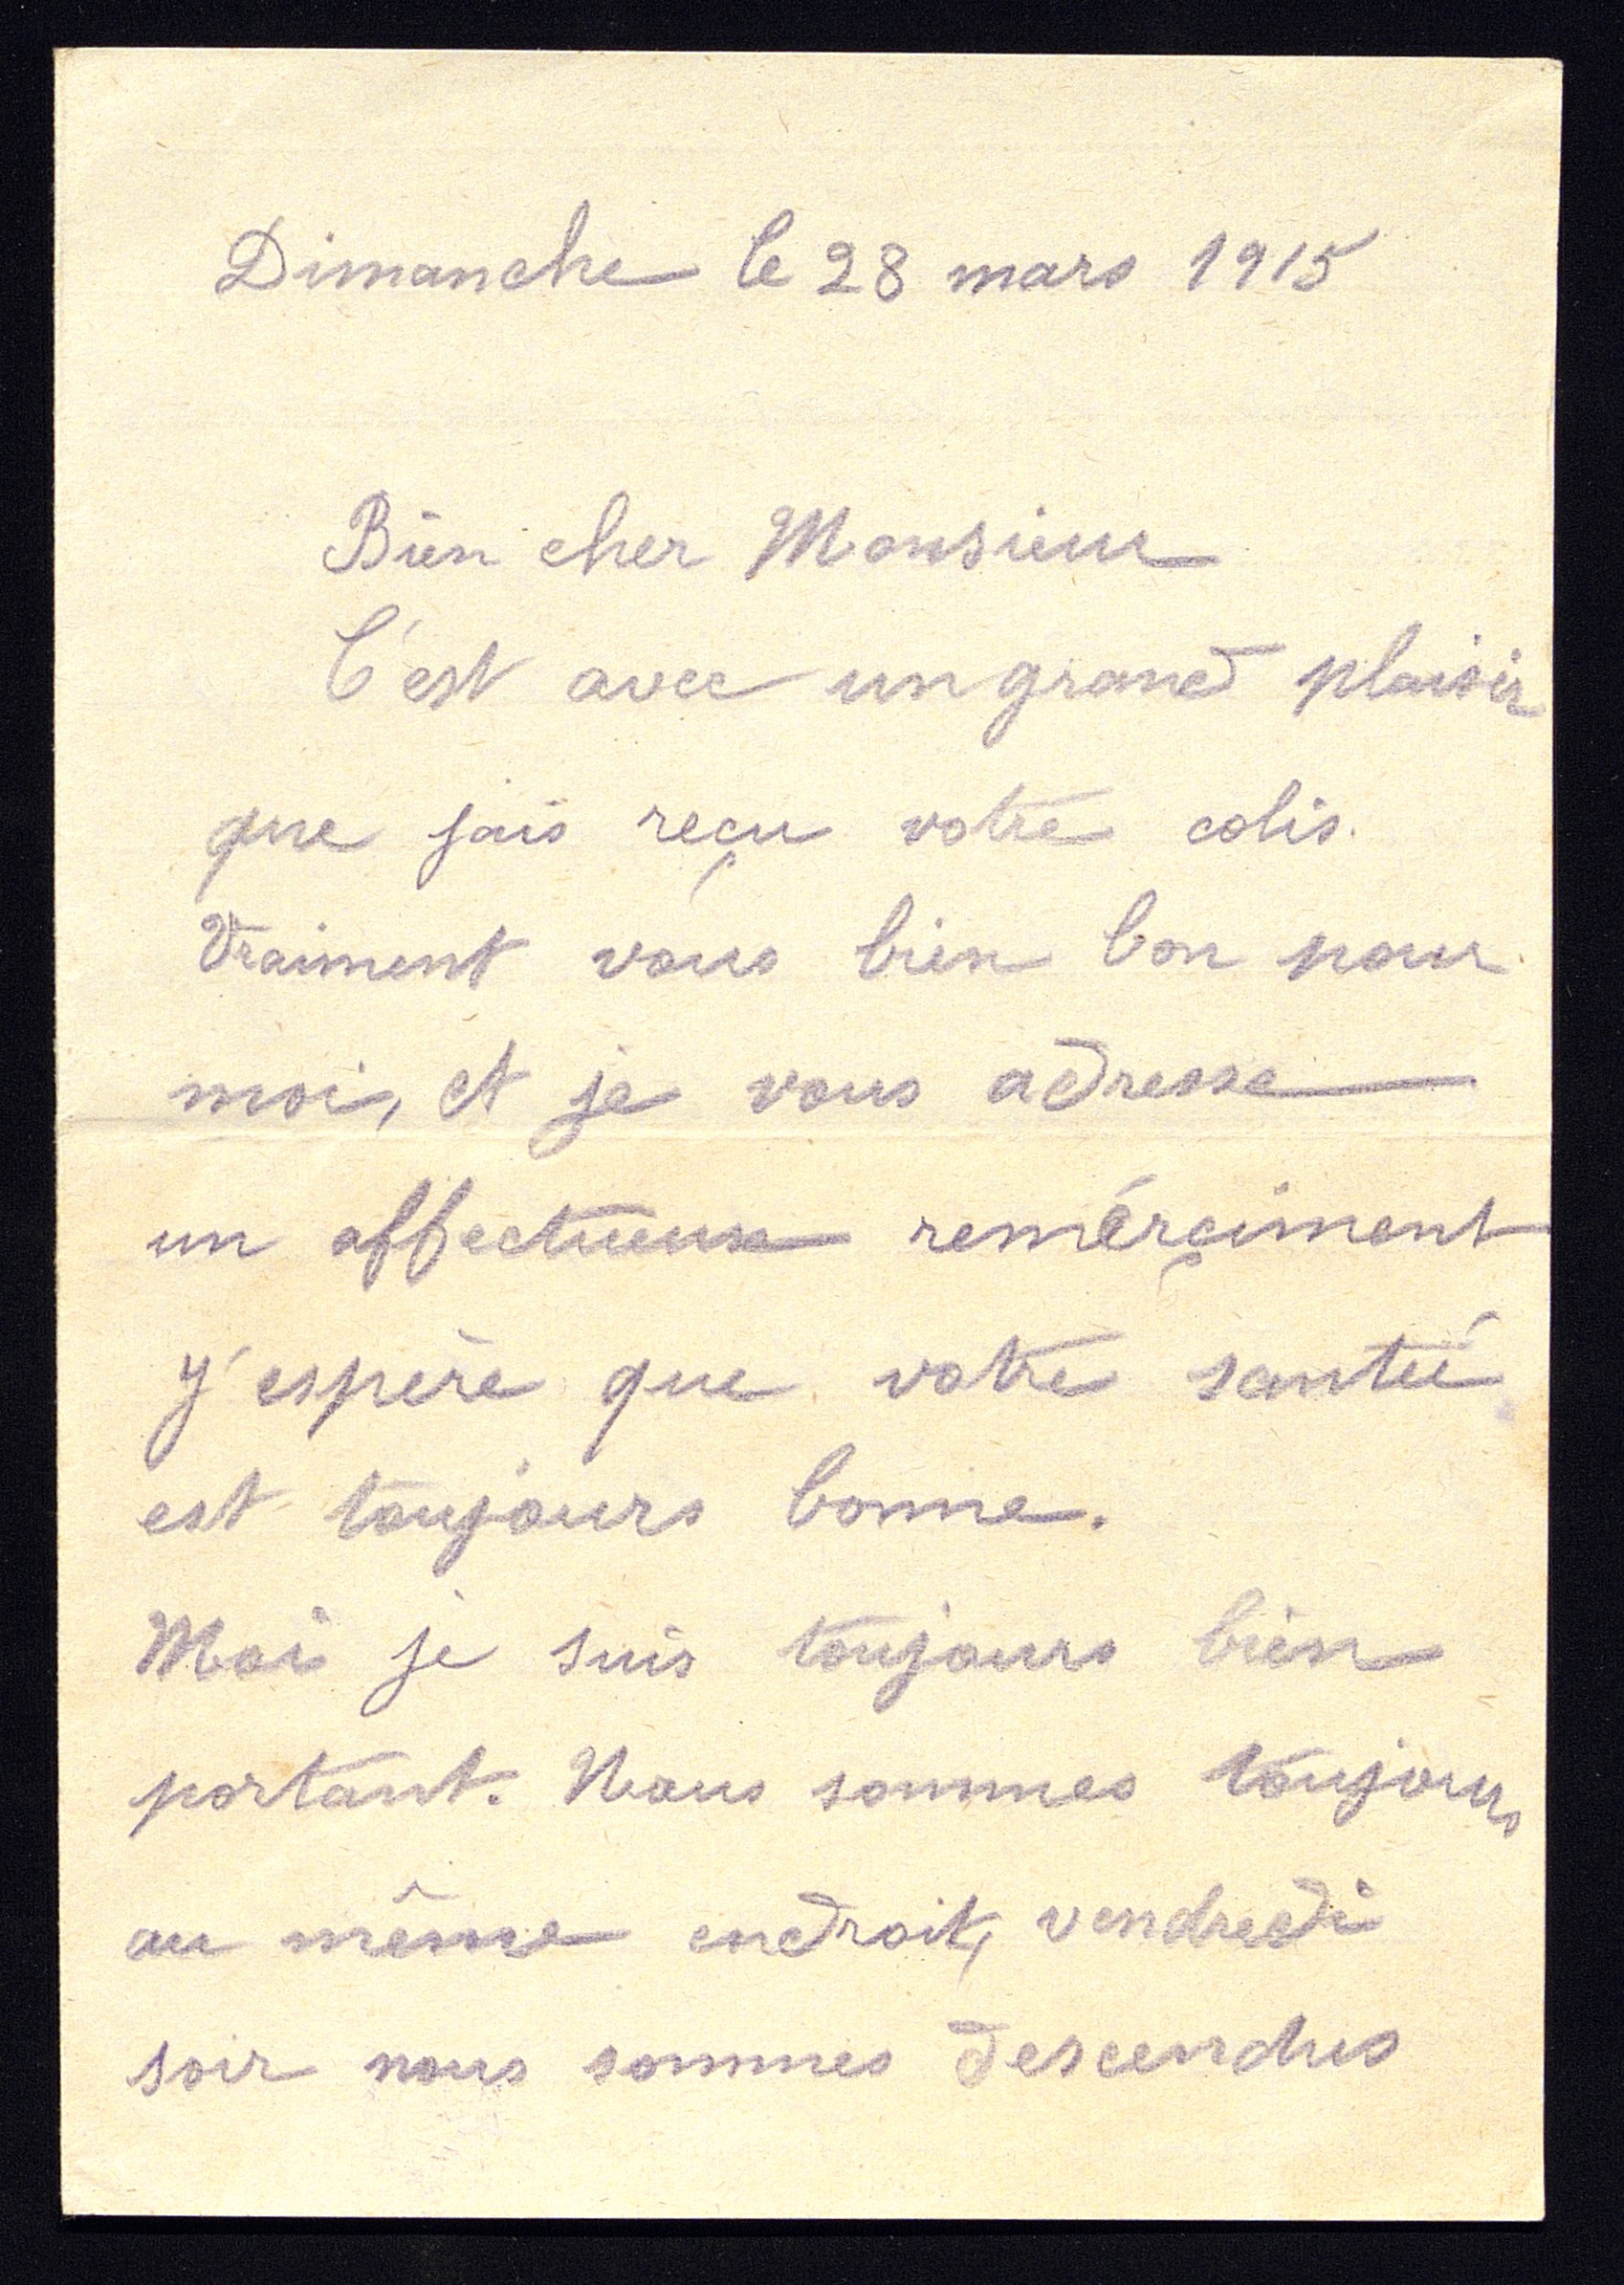 Dimanche le 28 mars 1915
Bien cher Monsieur
C'est avec un grand plaisir
que jais reçu votre colis.
Vraiment vous bien bon pour
moi, et je vous adresse
un affectueux remérçiment
Y'espère que votre santée
est toujours bonne.
Moi je suis toujours bien
portant. Nous sommes toujours
au même endroit, vendredi
soir nous sommes descendus